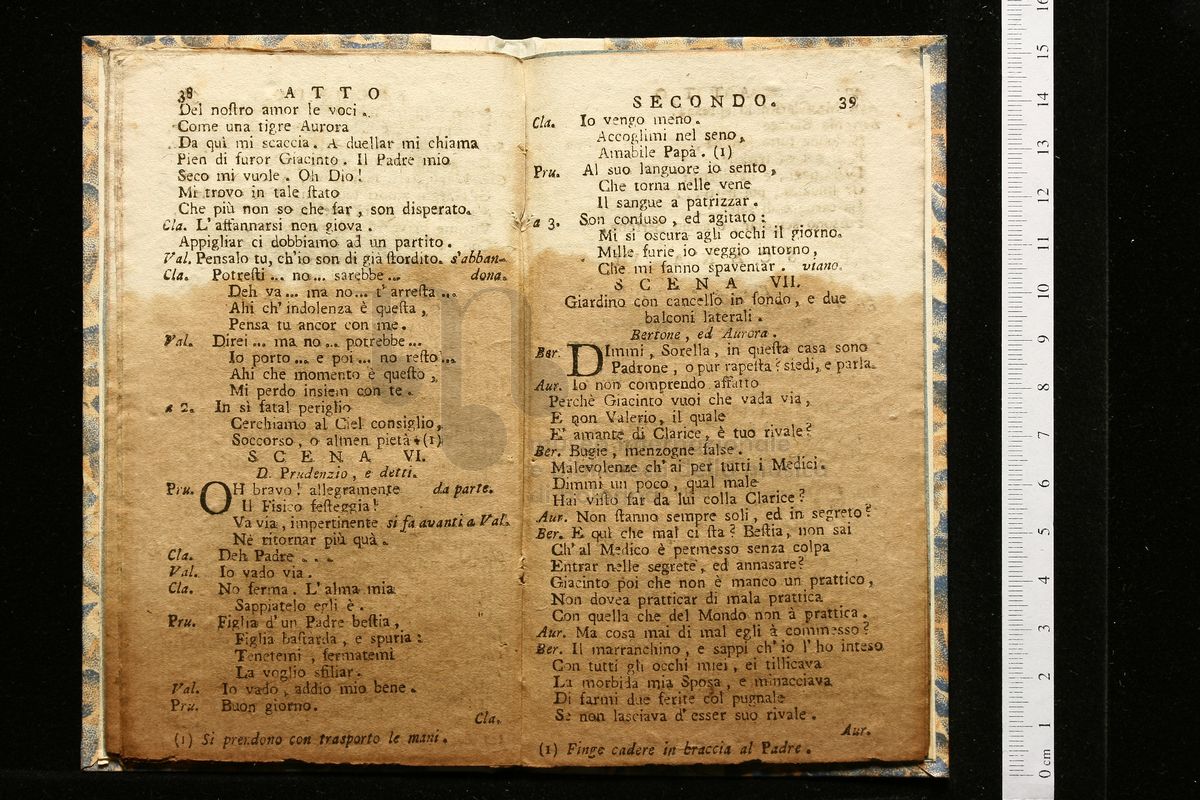 38 ATTO
Del noſtro amor le voci.
Come una tigre Aurora
Da quì mi scaccia. A duellar mi chiama
Pien di furor Giacinto. Il Padre mio
Seco mi vuole. Oh Dio!
Mi trovo in tale ſtato
Che più non so che far, son disperato.
Cla. L'affannarsi non giova.
Appigliar ci dobbiamo ad un partito.
Val. Pensalo tu, ch'io son di già ſtordito. s'abban-
Cla. Potreſti... no... sarebbe... dona.
Deh va... ma no... t'arreſta...
Ahi ch'indolenza è queſta,
Pensa tu ancor con me.
Val. Direi... ma no... potrebbe...
Io porto... e poi... no reſto...
Ahi che momento è queſto,
Mi perdo insiem con te.
a 2. In sì fatal periglio
Cerchiamo al Ciel consiglio,
Soccorso, o almen pietà. (1)
SCENA VI.
D. Prudenzio, e detti.
Pru. OH bravo! allegramente da parte.
Il Fisico feſteggia!
Va via, impertinente si fa avanti a Val.
Nè ritornar più quà.
Cla. Deh Padre...
Val. Io vado via.
Cla. No ferma. L'alma mia
Sappiatelo egli è.
Pru. Figlia d'un Padre beſtia,
Figlia baſtarda, e spuria:
Tenetemi, fermatemi
La voglio sfiliar.
Val. Io vado, addio mio bene.
Pru. Buon giorno.
Cla.
(1) Si prendono con trasporto le mani.
SECONDO. 39
Cla. Io vengo meno.
Accoglimi nel seno,
Amabile Papà. (1)
Pru. Al suo languore io sento,
Che torna nelle vene
Il sangue a patrizzar.
a 3. Son confuso, ed agitato:
Mi si oscura agli occhi il giorno.
Mille furie io veggio intorno,
Che mi fanno spaventar. viano.
SCENA VII.
Giardino con cancello in fondo, e due
balconi laterali.
Bertone, ed Aurora.
Ber. DImmi, Sorella, in queſta casa sono
Padrone, o pur rapeſta? siedi, e parla.
Aur. Io non comprendo affatto
Perchè Giacinto vuoi che vada via,
E non Valerio, il quale
E' amante di Clarice, è tuo rivale?
Ber. Bugie, menzogne false.
Malevolenze ch'ai per tutti i Medici.
Dimmi un poco, qual male
Hai viſto far da lui colla Clarice?
Aur. Non ſtanno sempre soli, ed in segreto?
Ber. E quì che mal ci ſta? Beſtia, non sai
Ch'al Medico è permesso senza colpa
Entrar nelle segrete, ed annasare?
Giacinto poi che non è manco un prattico,
Non dovea pratticar di mala prattica
Con quella che del Mondo non à prattica.
Aur. Ma cosa mai di mal egli à commesso?
Ber. Il marranchino, e sappi ch'io l'ho inteso
Con tutti gli occhi miei, ei tillicava
La morbida mia Sposa, e minacciava
Di farmi due ferite col pugnale
Se non lasciava d'esser suo rivale.
Aur.
(1) Finge cadere in braccia al Padre.
16
15
14
13
12
11
10
9
8
7
6
5
4
3
2
1
0 cm